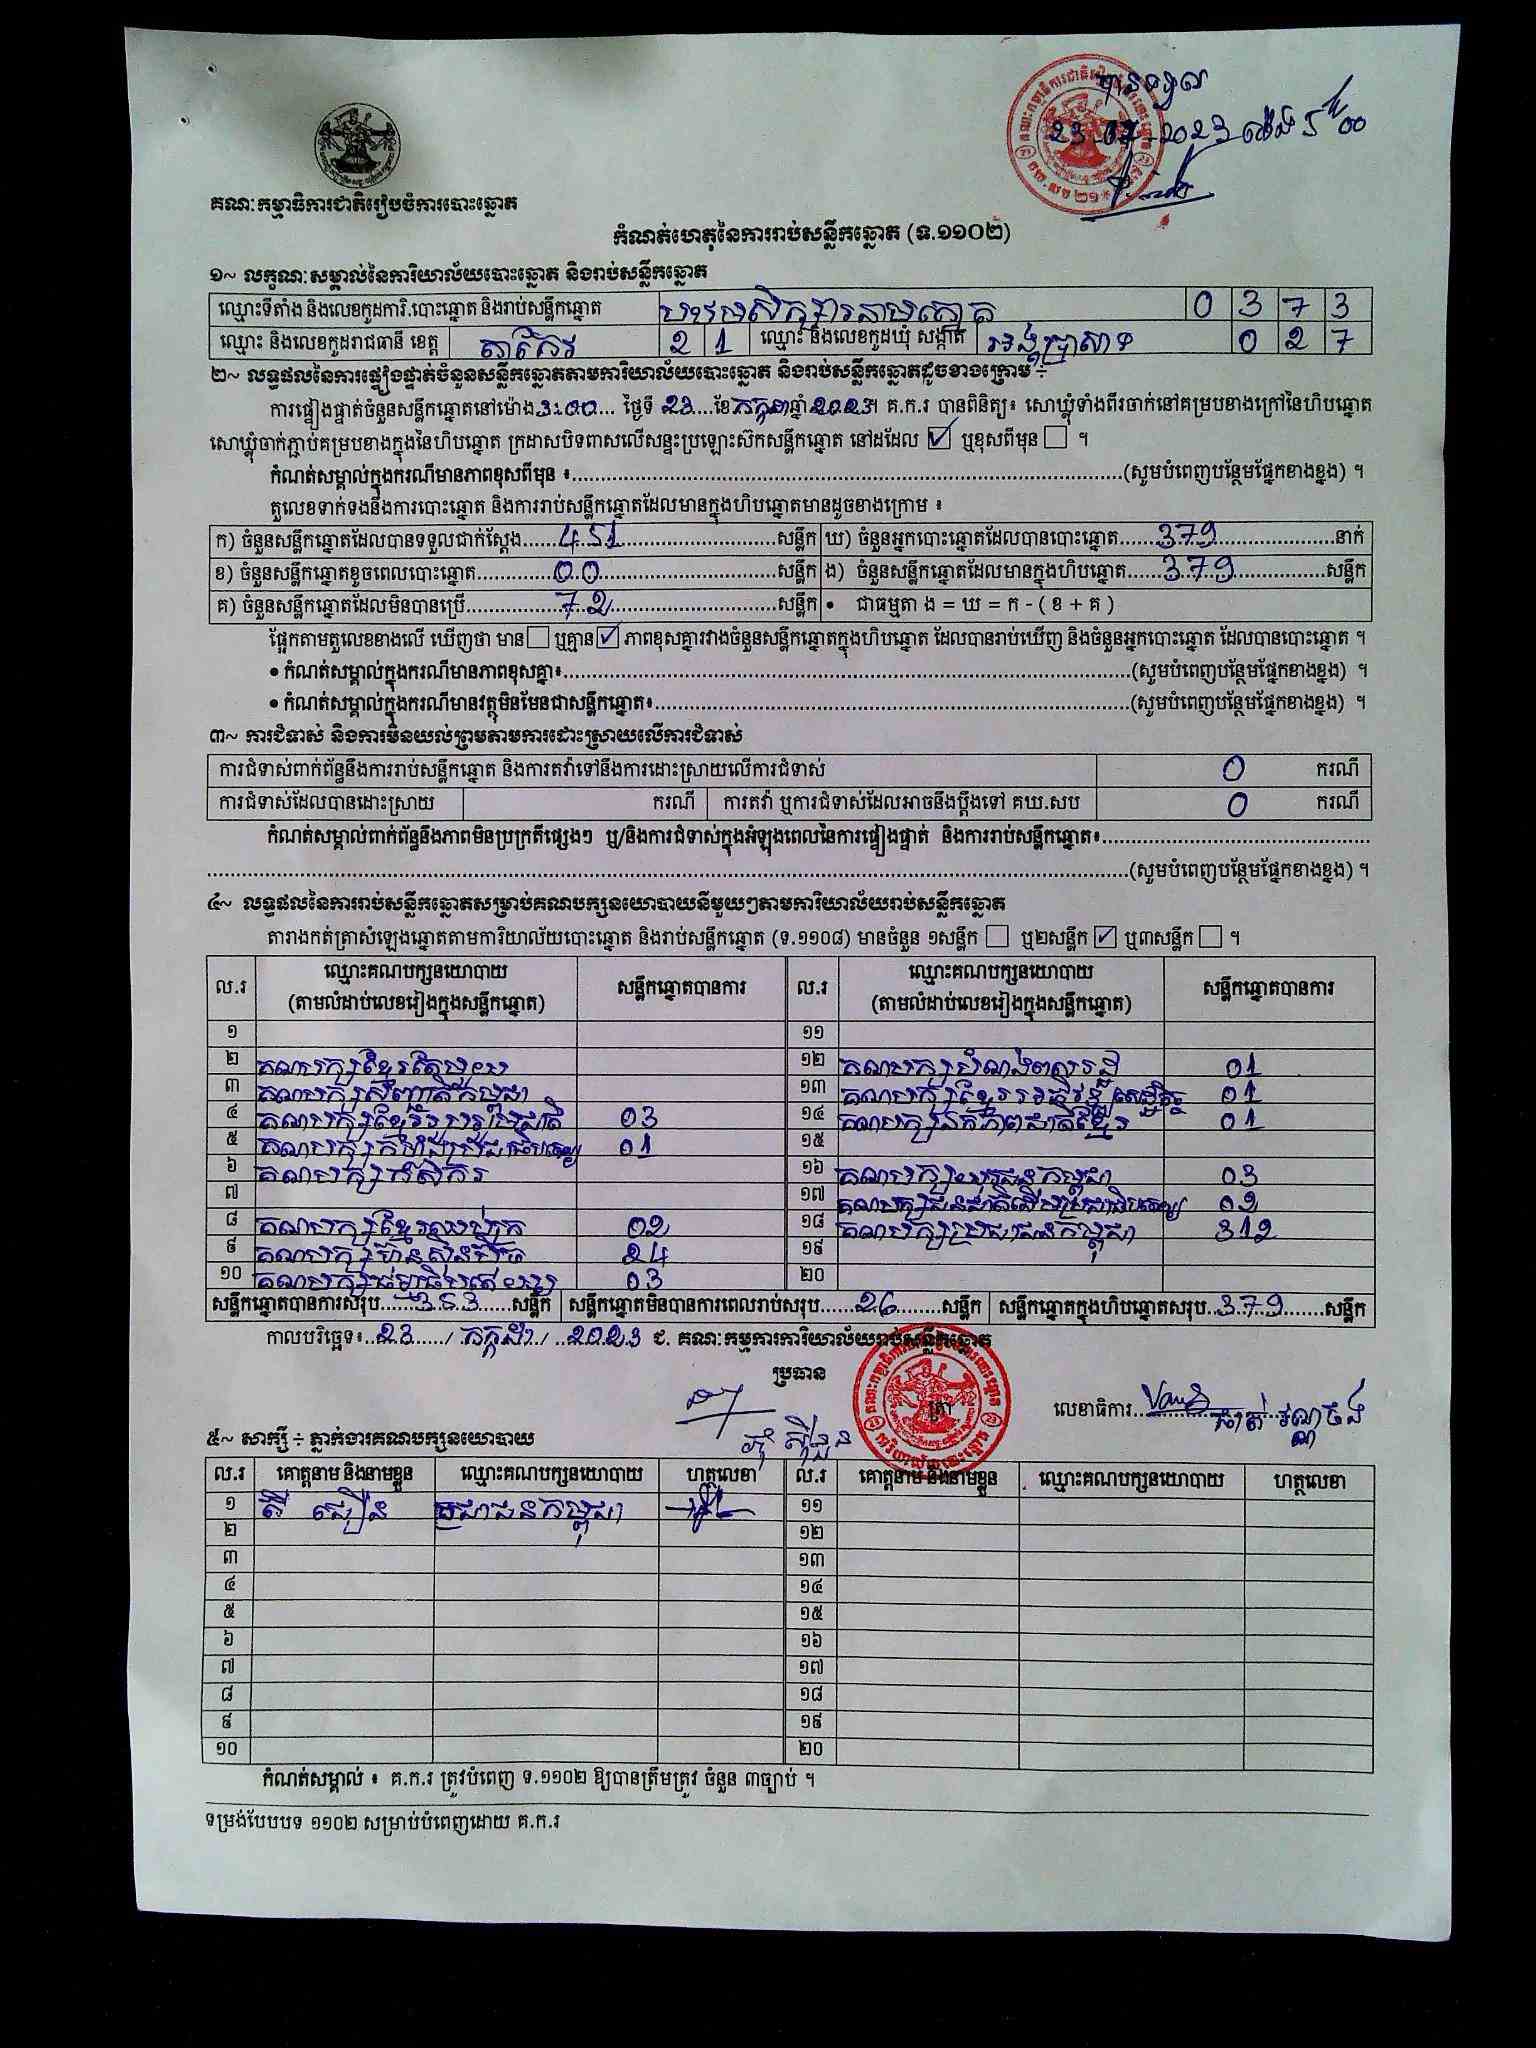 បានទទួល
23-07-2023 ម៉ោង 5:00
គណៈកម្មាធិការជាតិរៀបចំការបោះឆ្នោត
កំណត់ហេតុនៃការរាប់សន្លឹកឆ្នោត (ទ.១១០២)
១~ លក្ខណៈសម្គាល់នៃការិយាល័យបោះឆ្នោត និងរាប់សន្លឹកឆ្នោត
ឈ្មោះទីតាំង និងលេខកូដការិ.បោះឆ្នោត និងរាប់សន្លឹកឆ្នោត បឋមសិក្សា 0 3 7 3
ឈ្មោះ និងលេខកូដរាជធានី ខេត្ត តាកែវ 2 1 ឈ្មោះ និងលេខកូដឃុំ សង្កាត់ អង្គប្រាសាទ 0 2 7
២~ លទ្ធផលនៃការផ្ទៀងផ្ទាត់ចំនួនសន្លឹកឆ្នោតតាមការិយាល័យបោះឆ្នោត និងរាប់សន្លឹកឆ្នោតដូចខាងក្រោម ÷
ការផ្ទៀងផ្ទាត់ចំនួនសន្លឹកឆ្នោតនៅម៉ោង 3:00 ថ្ងៃទី 23 ខែ កក្កដា ឆ្នាំ 2023។ គ.ក.រ បានពិនិត្យ៖ សោឃ្លុំទាំងពីរចាក់នៅគម្របខាងក្រៅនៃហិបឆ្នោត
សោឃ្លុំចាក់ភ្ជាប់គម្របខាងក្នុងនៃហិបឆ្នោត ក្រដាសបិទពាសលើសន្ទះប្រឡោះស៊កសន្លឹកឆ្នោត នៅដដែល ☑ ឬខុសពីមុន ☐ ។
កំណត់សម្គាល់ក្នុងករណីមានភាពខុសពីមុន ៖........(សូមបំពេញបន្ថែមផ្នែកខាងខ្នង) ។
តួលេខទាក់ទងនឹងការបោះឆ្នោត និងការរាប់សន្លឹកឆ្នោតដែលមានក្នុងហិបឆ្នោតមានដូចខាងក្រោម ៖
ក) ចំនួនសន្លឹកឆ្នោតដែលបានទទួលជាក់ស្តែង 451 សន្លឹក ឃ) ចំនួនអ្នកបោះឆ្នោតដែលបានបោះឆ្នោត 379 នាក់
ខ) ចំនួនសន្លឹកឆ្នោតខូចពេលបោះឆ្នោត 00 សន្លឹក ង) ចំនួនសន្លឹកឆ្នោតដែលមានក្នុងហិបឆ្នោត 379 សន្លឹក
គ) ចំនួនសន្លឹកឆ្នោតដែលមិនបានប្រើ 72 សន្លឹក • ជាធម្មតា ង = ឃ = ក - ( ខ + គ )
ផ្អែកតាមតួលេខខាងលើ ឃើញថា មាន ☐ ឬគ្មាន ☑ ភាពខុសគ្នារវាងចំនួនសន្លឹកឆ្នោតក្នុងហិបឆ្នោត ដែលបានរាប់ឃើញ និងចំនួនអ្នកបោះឆ្នោត ដែលបានបោះឆ្នោត ។
• កំណត់សម្គាល់ក្នុងករណីមានភាពខុសគ្នា៖........(សូមបំពេញបន្ថែមផ្នែកខាងខ្នង) ។
• កំណត់សម្គាល់ក្នុងករណីមានវត្ថុមិនមែនជាសន្លឹកឆ្នោត៖........(សូមបំពេញបន្ថែមផ្នែកខាងខ្នង) ។
៣~ ការជំទាស់ និងការមិនយល់ព្រមតាមការដោះស្រាយលើការជំទាស់
ការជំទាស់ពាក់ព័ន្ធនឹងការរាប់សន្លឹកឆ្នោត និងការតវ៉ាទៅនឹងការដោះស្រាយលើការជំទាស់ 0 ករណី
ការជំទាស់ដែលបានដោះស្រាយ ករណី ការតវ៉ា ឬការជំទាស់ដែលអាចនឹងប្តឹងទៅ គឃ.សប 0 ករណី
កំណត់សម្គាល់ពាក់ព័ន្ធនឹងភាពមិនប្រក្រតីផ្សេងៗ ឬ/និងការជំទាស់ក្នុងអំឡុងពេលនៃការផ្ទៀងផ្ទាត់ និងការរាប់សន្លឹកឆ្នោត៖........
........(សូមបំពេញបន្ថែមផ្នែកខាងខ្នង) ។
៤~ លទ្ធផលនៃការរាប់សន្លឹកឆ្នោតសម្រាប់គណបក្សនយោបាយនីមួយៗតាមការិយាល័យរាប់សន្លឹកឆ្នោត
តារាងកត់ត្រាសំឡេងឆ្នោតតាមការិយាល័យបោះឆ្នោត និងរាប់សន្លឹកឆ្នោត (ទ.១១០៨) មានចំនួន ១សន្លឹក ☐ ឬ២សន្លឹក ☑ ឬ៣សន្លឹក ☐ ។
ល.រ ឈ្មោះគណបក្សនយោបាយ (តាមលំដាប់លេខរៀងក្នុងសន្លឹកឆ្នោត) សន្លឹកឆ្នោតបានការ ល.រ ឈ្មោះគណបក្សនយោបាយ (តាមលំដាប់លេខរៀងក្នុងសន្លឹកឆ្នោត) សន្លឹកឆ្នោតបានការ
១ ១១
២ គណបក្សខ្មែរតែមួយ ១២ គណបក្សបំណងពលរដ្ឋ 01
៣ គណបក្សសញ្ជាតិកម្ពុជា ១៣ គណបក្សខ្មែរអភិវឌ្ឍន៍សេដ្ឋកិច្ច 01
៤ គណបក្សខ្មែររួបរួមជាតិ 03 ១៤ គណបក្សឯកភាពជាតិខ្មែរ 01
៥ គណបក្សកម្លាំងប្រជាធិបតេយ្យ 01 ១៥
៦ គណបក្សកសិករ ១៦ គណបក្សយុវជនកម្ពុជា 03
៧ ១៧ គណបក្សជនជាតិដើមប្រជាធិបតេយ្យ 02
៨ គណបក្សខ្មែរឈប់ក្រ 02 ១៨ គណបក្សប្រជាជនកម្ពុជា 312
៩ គណបក្សហ៊្វុនស៊ិនប៉ិច 24 ១៩
១០ គណបក្សធម្មាធិបតេយ្យ 03 ២០
សន្លឹកឆ្នោតបានការសរុប 353 សន្លឹក សន្លឹកឆ្នោតមិនបានការពេលរាប់សរុប 26 សន្លឹក សន្លឹកឆ្នោតក្នុងហិបឆ្នោតសរុប 379 សន្លឹក
កាលបរិច្ឆេទ៖ 23 / កក្កដា / 2023 ជ. គណៈកម្មការការិយាល័យរាប់សន្លឹកឆ្នោត
ប្រធាន
ត្រា
លេខាធិការ
៥~ សាក្សី ÷ ភ្នាក់ងារគណបក្សនយោបាយ
ល.រ គោត្តនាម និងនាមខ្លួន ឈ្មោះគណបក្សនយោបាយ ហត្ថលេខា ល.រ គោត្តនាម និងនាមខ្លួន ឈ្មោះគណបក្សនយោបាយ ហត្ថលេខា
១ ជឿន ប្រជាជនកម្ពុជា ១១
២ ១២
៣ ១៣
៤ ១៤
៥ ១៥
៦ ១៦
៧ ១៧
៨ ១៨
៩ ១៩
១០ ២០
កំណត់សម្គាល់ ៖ គ.ក.រ ត្រូវបំពេញ ទ.១១០២ ឱ្យបានត្រឹមត្រូវ ចំនួន ៣ច្បាប់ ។
ទម្រង់បែបបទ ១១០២ សម្រាប់បំពេញដោយ គ.ក.រ